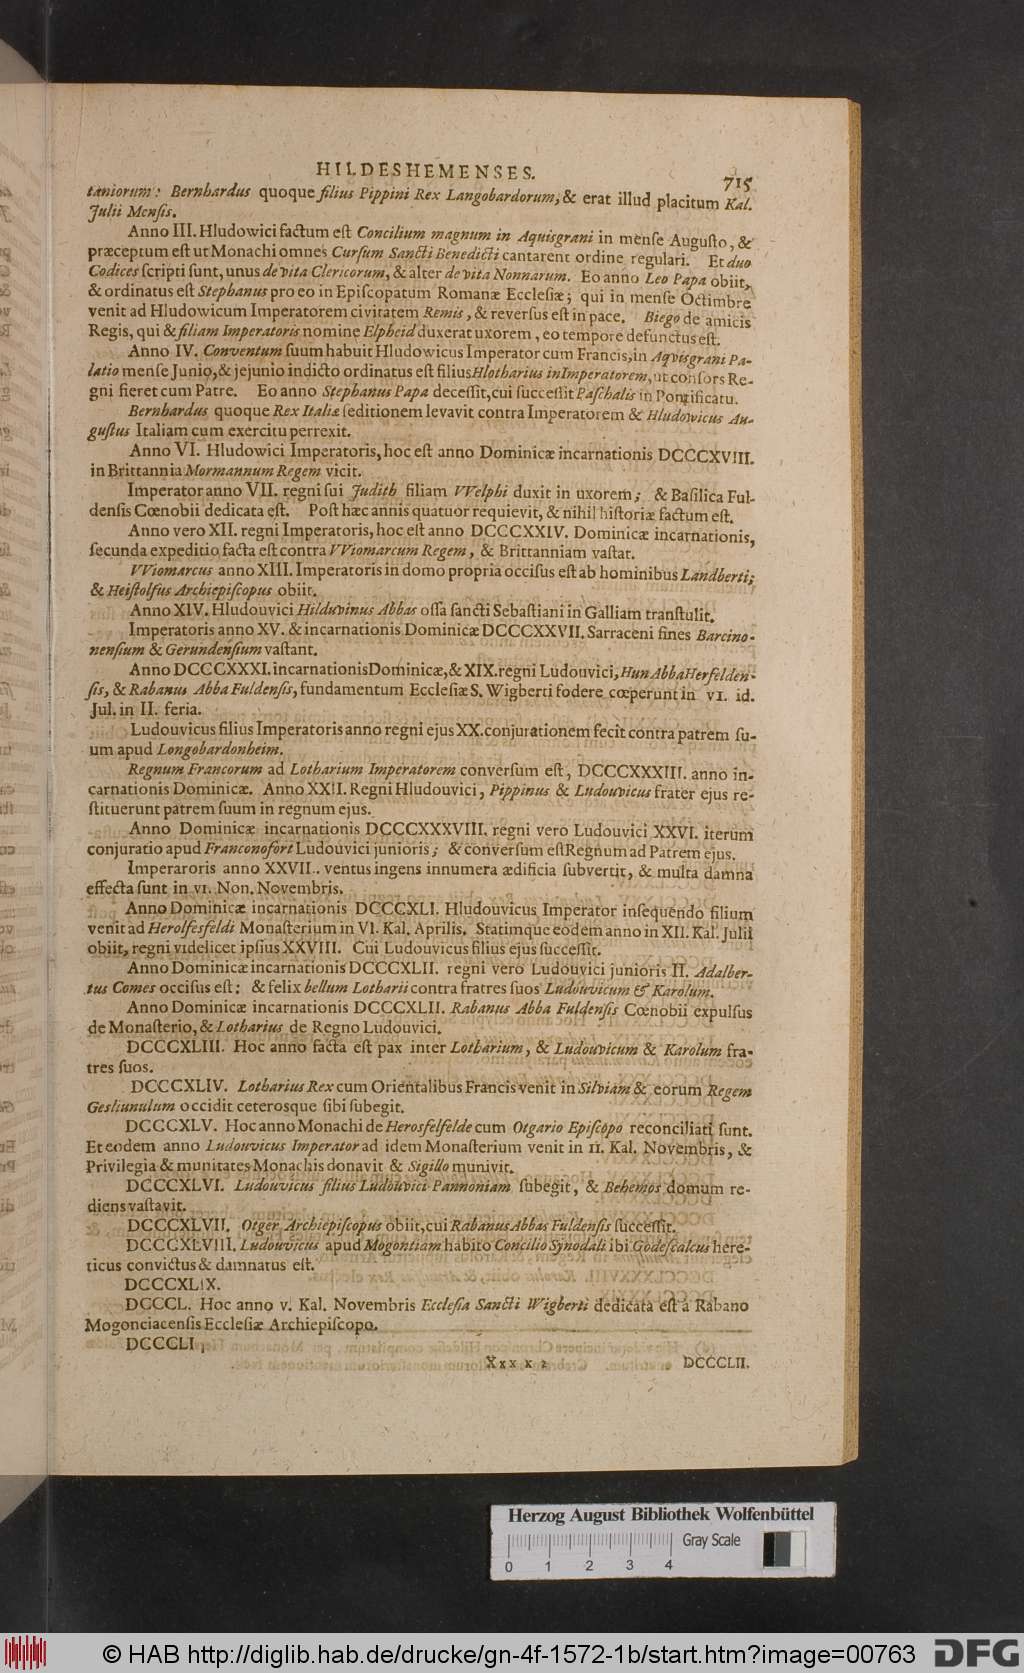 HILDESHEMENSES. 715
taniorum: Bernhardus quoque filius Pippini Rex Langobardorum, & erat illud placitum Kal.
Julii Mensis.
Anno III. Hludowici factum est Concilium magnum in Aquisgrani in mense Augusto, &
præceptum est ut Monachi omnes Cursum Sancti Benedicti cantarent ordine regulari. Et duo
Codices scripti sunt, unus de vita Clericorum, & alter de vita Nonnarum. Eo anno Leo Papa obiit,
& ordinatus est Stephanus pro eo in Episcopatum Romanæ Ecclesiæ; qui in mense Octimbre
venit ad Hludowicum Imperatorem civitatem Remis, & reversus est in pace. Biego de amicis
Regis, qui & filiam Imperatoris nomine Elpheid duxerat uxorem, eo tempore defunctus est.
Anno IV. Conventum suum habuit Hludowicus Imperator cum Francis, in Aqvisgrani Pa-
latio mense Junio, & jejunio indicto ordinatus est filius Hlotharius in Imperatorem, ut consors Re-
gni fieret cum Patre. Eo anno Stephanus Papa decessit, cui successit Paschalis in Pontificatu.
Bernhardus quoque Rex Italiæ seditionem levavit contra Imperatorem & Hludowicus Au-
gustus Italiam cum exercitu perrexit.
Anno VI. Hludowici Imperatoris, hoc est anno Dominicæ incarnationis DCCCXVIII.
in Brittannia Mormannum Regem vicit.
Imperator anno VII. regni sui Judith filiam VVelphi duxit in uxorem; & Basilica Ful-
densis Cœnobii dedicata est. Post hæc annis quatuor requievit, & nihil historiæ factum est.
Anno vero XII. regni Imperatoris, hoc est anno DCCCXXIV. Dominicæ incarnationis,
secunda expeditio facta est contra VViomarcum Regem, & Brittanniam vastat.
VViomarcus anno XIII. Imperatoris in domo propria occisus est ab hominibus Landberti;
& Heistolfus Archiepiscopus obiit.
Anno XIV. Hludouvici Hilduvinus Abbas ossa sancti Sebastiani in Galliam transtulit.
Imperatoris anno XV. & incarnationis Dominicæ DCCCXXVII. Sarraceni fines Barcino-
nensium & Gerundensium vastant.
Anno DCCCXXXI. incarnationis Dominicæ, & XIX. regni Ludouvici, Hun Abba Herfelden-
sis, & Rabanus Abba Fuldensis, fundamentum Ecclesiæ S. Wigberti fodere cœperunt in VI. id.
Jul. in II. feria.
Ludouvicus filius Imperatoris anno regni ejus XX. conjurationem fecit contra patrem su-
um apud Longobardonheim.
Regnum Francorum ad Lotharium Imperatorem conversum est, DCCCXXXIII. anno in-
carnationis Dominicæ. Anno XXII. Regni Hludouvici, Pippinus & Ludouvicus frater ejus re-
stituerunt patrem suum in regnum ejus.
Anno Dominicæ incarnationis DCCCXXXVIII. regni vero Ludouvici XXVI. iterum
conjuratio apud Franconofort Ludouvici junioris; & conversum est Regnum ad Patrem ejus.
Imperaroris anno XXVII. ventus ingens innumera ædificia subvertit, & multa damna
effecta sunt in VI. Non. Novembris.
Anno Dominicæ incarnationis DCCCXLI. Hludouvicus Imperator insequendo filium
venit ad Herolfesfeldi Monasterium in VI. Kal. Aprilis. Statimque eodem anno in XII. Kal. Julii
obiit, regni videlicet ipsius XXVIII. Cui Ludouvicus filius ejus successit.
Anno Dominicæ incarnationis DCCCXLII. regni vero Ludouvici junioris II. Adalber-
tus Comes occisus est: & felix bellum Lotharii contra fratres suos Ludouvicum & Karolum.
Anno Dominicæ incarnationis DCCCXLII. Rabanus Abba Fuldensis Cœnobii expulsus
de Monasterio, & Lotharius de Regno Ludouvici.
DCCCXLIII. Hoc anno facta est pax inter Lotharium, & Ludouvicum & Karolum fra-
tres suos.
DCCCXLIV. Lotharius Rex cum Orientalibus Francis venit in Silviam & eorum Regem
Gesliunulum occidit ceterosque sibi subegit.
DCCCXLV. Hoc anno Monachi de Herosfelfelde cum Otgario Episcopo reconciliati sunt.
Et eodem anno Ludouvicus Imperator ad idem Monasterium venit in II. Kal. Novembris, &
Privilegia & munitates Monachis donavit & Sigillo munivit.
DCCCXLVI. Ludouvicus filius Ludouvici Pannoniam subegit, & Behemos domum re-
diens vastavit.
DCCCXLVII. Otger Archiepiscopus obiit, cui Rabanus Abbas Fuldensis successit.
DCCCXLVIII. Ludouvicus apud Mogontiam habito Concilio Synodali ibi Godescalcus here-
ticus convictus & damnatus est.
DCCCXLIX.
DCCCL. Hoc anno V. Kal. Novembris Ecclesia Sancti Wigberti dedicata est à Rabano
Mogonciacensis Ecclesiæ Archiepiscopo.
DCCCLI,
Xxx x 2 DCCCLII.
Herzog August Bibliothek Wolfenbüttel
Gray Scale
0 1 2 3 4
© HAB http://diglib.hab.de/drucke/gn-4f-1572-1b/start.htm?image=00763 DFG